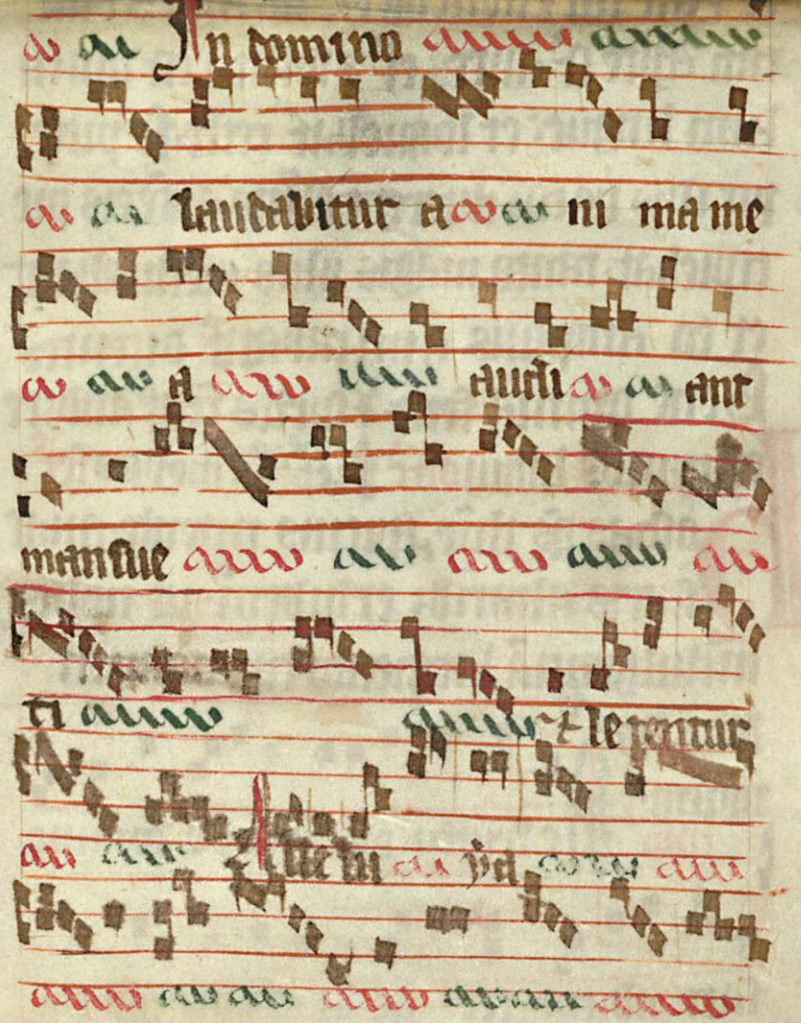 In domino
laudabitur a ni ma me
a audi ant
mansue
ti et letentur
Alleluia